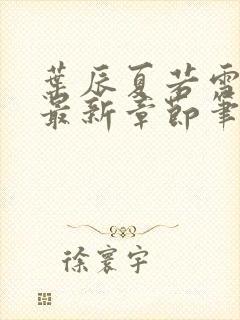 葉辰夏若雪
最新章節筆
徐寰宇